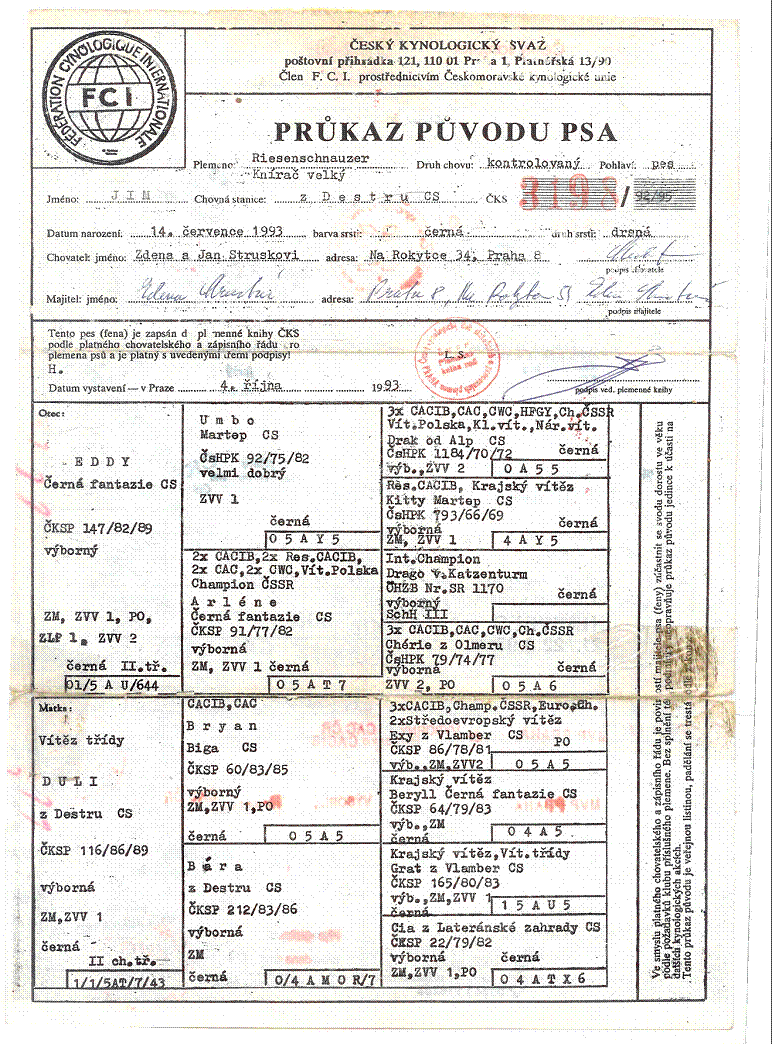 FÉDÉRATION CYNOLOGIQUE INTERNATIONALE
FCI
ČESKÝ KYNOLOGICKÝ SVAZ
poštovní přihrádka 121, 110 01 Pr a 1, Platnéřská 13/90
Člen F. C. I. prostřednictvím Českomoravské kynologické unie
PRŮKAZ PŮVODU PSA
Plemeno: Riesenschnauzer
Knírač velký
Druh chovu: kontrolovaný Pohlaví: pes
Jméno: JIM Chovná stanice: z Destru CS ČKS / 92/95
Datum narození: 14. července 1993 barva srsti: černá druh srsti: drsná
Chovatel: jméno: Zdena a Jan Struskovi adresa: Na Rokytce 34, Praha 8
podpis chovatele
Majitel: jméno: adresa: Praha 8,
podpis majitele
Tento pes (fena) je zapsán d pl menné knihy ČKS
podle platného chovatelského a zápisního řádu ro
plemena psů a je platný s uvedenými všemi podpisy!
H.
L. S.
Datum vystavení — v Praze 4. října 1993
podpis ved. plemenné knihy
Otec:
EDDY
Černá fantazie CS
ČKSP 147/82/89
výborný
ZM, ZVV 1, PO,
ZLP 1, ZVV 2
černá II.tř.
01/5 A U/644
Umbo
Martep CS
ČsHPK 92/75/82
velmi dobrý
ZVV 1
černá
05AY5
2x CACIB,2x Res.CACIB,
2x CAC,2x CWC,Vít.Polska
Champion ČSSR
Arléne
Černá fantazie CS
ČKSP 91/77/82
výborná
ZM, ZVV 1 černá
05AT7
3x CACIB,CAC,CWC,HPGY,Ch.ČSSR
Vít.Polska,Kl.vít.,Nár.vít.
Drak od Alp CS
ČsHPK 1184/70/72 černá
výb.,ZVV 2 0A55
Res.CACIB, Krajský vítěz
Kitty Martep CS
ČsHPK 793/66/69
výborná černá
ZM, ZVV 1 4AY5
Int.Champion
Drago v.Katzenturm
ČHZB Nr.SR 1170
výborný černá
SchH III
3x CACIB,CAC,CWC,Ch.ČSSR
Chérie z Olmeru CS
ČsHPK 79/74/77
výborná černá
ZVV 2, PO 05A6
Matka:
Vítěz třídy
DULI
z Destru CS
ČKSP 116/86/89
výborná
ZM,ZVV 1
černá
II ch.tř.
1/1/5AT/7/43
CACIB,CAC
Bryan
Biga CS
ČKSP 60/83/85
výborný
ZM,ZVV 1,PO
černá 05A5
Bára
z Destru CS
ČKSP 212/83/86
výborná
ZM
černá 0/4AMOR/7
3xCACIB,Champ.ČSSR,Euro.Ch.
2xStředoevropský vítěz
Exy z Vlamber CS
ČKSP 86/78/81 PO
výb.,ZM,ZVV2 05A5
Krajský vítěz
Beryll Černá fantazie CS
ČKSP 64/79/83
výb.,ZM
černá 04A5
Krajský vítěz,Vít.třídy
Grat z Vlamber CS
ČKSP 165/80/83
výb.,ZM,ZVV 1
černá 15AU5
Cia z Lateránské zahrady CS
ČKSP 22/79/82
výborná černá
ZM,ZVV 1,PO 04ATX6
Ve smyslu platného chovatelského a zápisního řádu je povinností majitele psa (feny) zúčastnit se svodu dorostu ve věku
podle požadavků klubu příslušného plemene. Bez splnění té podmínky neopravňuje průkaz původu jedince k účasti na
dalších kynologických akcích.
Tento průkaz původu je veřejnou listinou, padělání se trestá podle zákona.